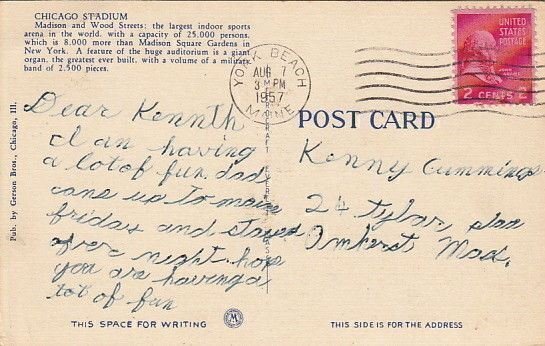 CHICAGO STADIUM
Madison and Wood Streets: the largest indoor sports
arena in the world, with a capacity of 25.000 persons.
which is 8.000 more than Madison Square Gardens in
New York. A feature of the huge auditorium is a giant
organ, the greatest ever built, with a volume of a military
band of 2.500 pieces.
YORK BEACH
AUG 7
3 PM
1957
MAINE
UNITED
STATES
POSTAGE
2 CENTS 2
POST CARD
Dear Kennth
I an having
a lot of fun. dad
cane up to maine
friday and stayed
over night. hop
you are having a
lot of fun
Kenny Cummings
24 Tyler, plan
Amherst Mass.
Pub. by Gerson Bros., Chicago, Ill.
THIS SPACE FOR WRITING
THIS SIDE IS FOR THE ADDRESS